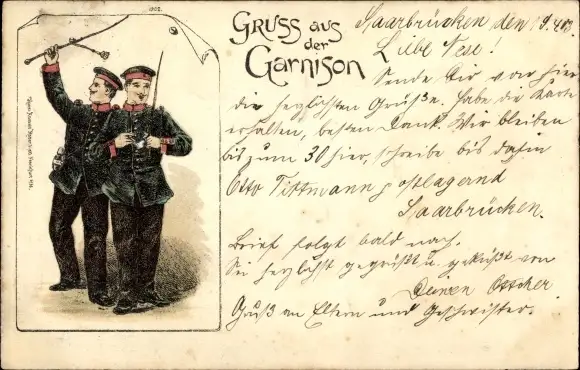 1902.
GRUSS aus
der
Garnison
Saarbrücken den 19.4.03
Liebe Rese!
Sende Dir von hier
die herzlichsten Grüße. Habe die Karte
erhalten, besten Dank. Wir bleiben
bis zum 30 hier, schreibe bis dahin
Otto Tittmann postlagernd
Saarbrücken.
Brief folgt bald nach.
Sei herzlichst gegrüßt u. geküßt von
Deinen Ottcher
Gruß an Eltern und Geschwister.